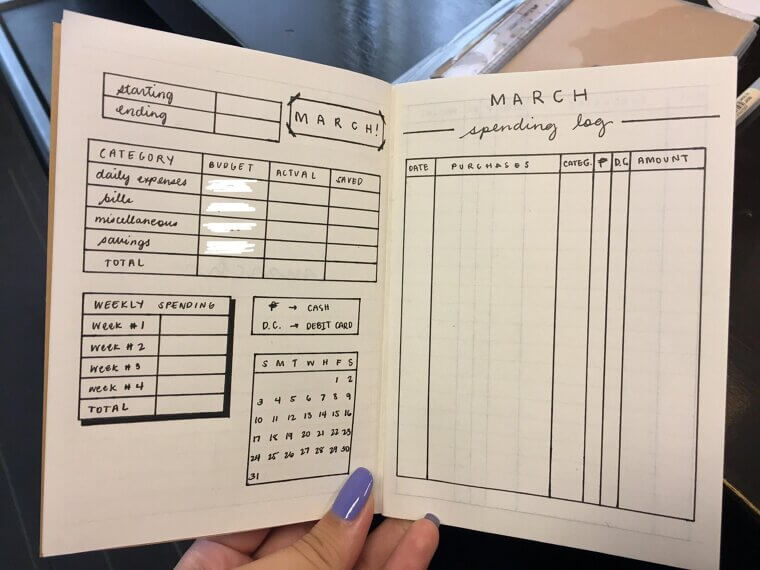 starting
ending
MARCH!
CATEGORY BUDGET ACTUAL SAVED
daily expenses
bills
miscellaneous
savings
TOTAL
WEEKLY SPENDING
week #1
week #2
week #3
week #4
TOTAL
₱ → CASH
D.C. → DEBIT CARD
S M T W H F S
1 2
3 4 5 6 7 8 9
10 11 12 13 14 15 16
17 18 19 20 21 22 23
24 25 26 27 28 29 30
31
MARCH
spending log
DATE PURCHASES CATEG. ₱ D.C. AMOUNT